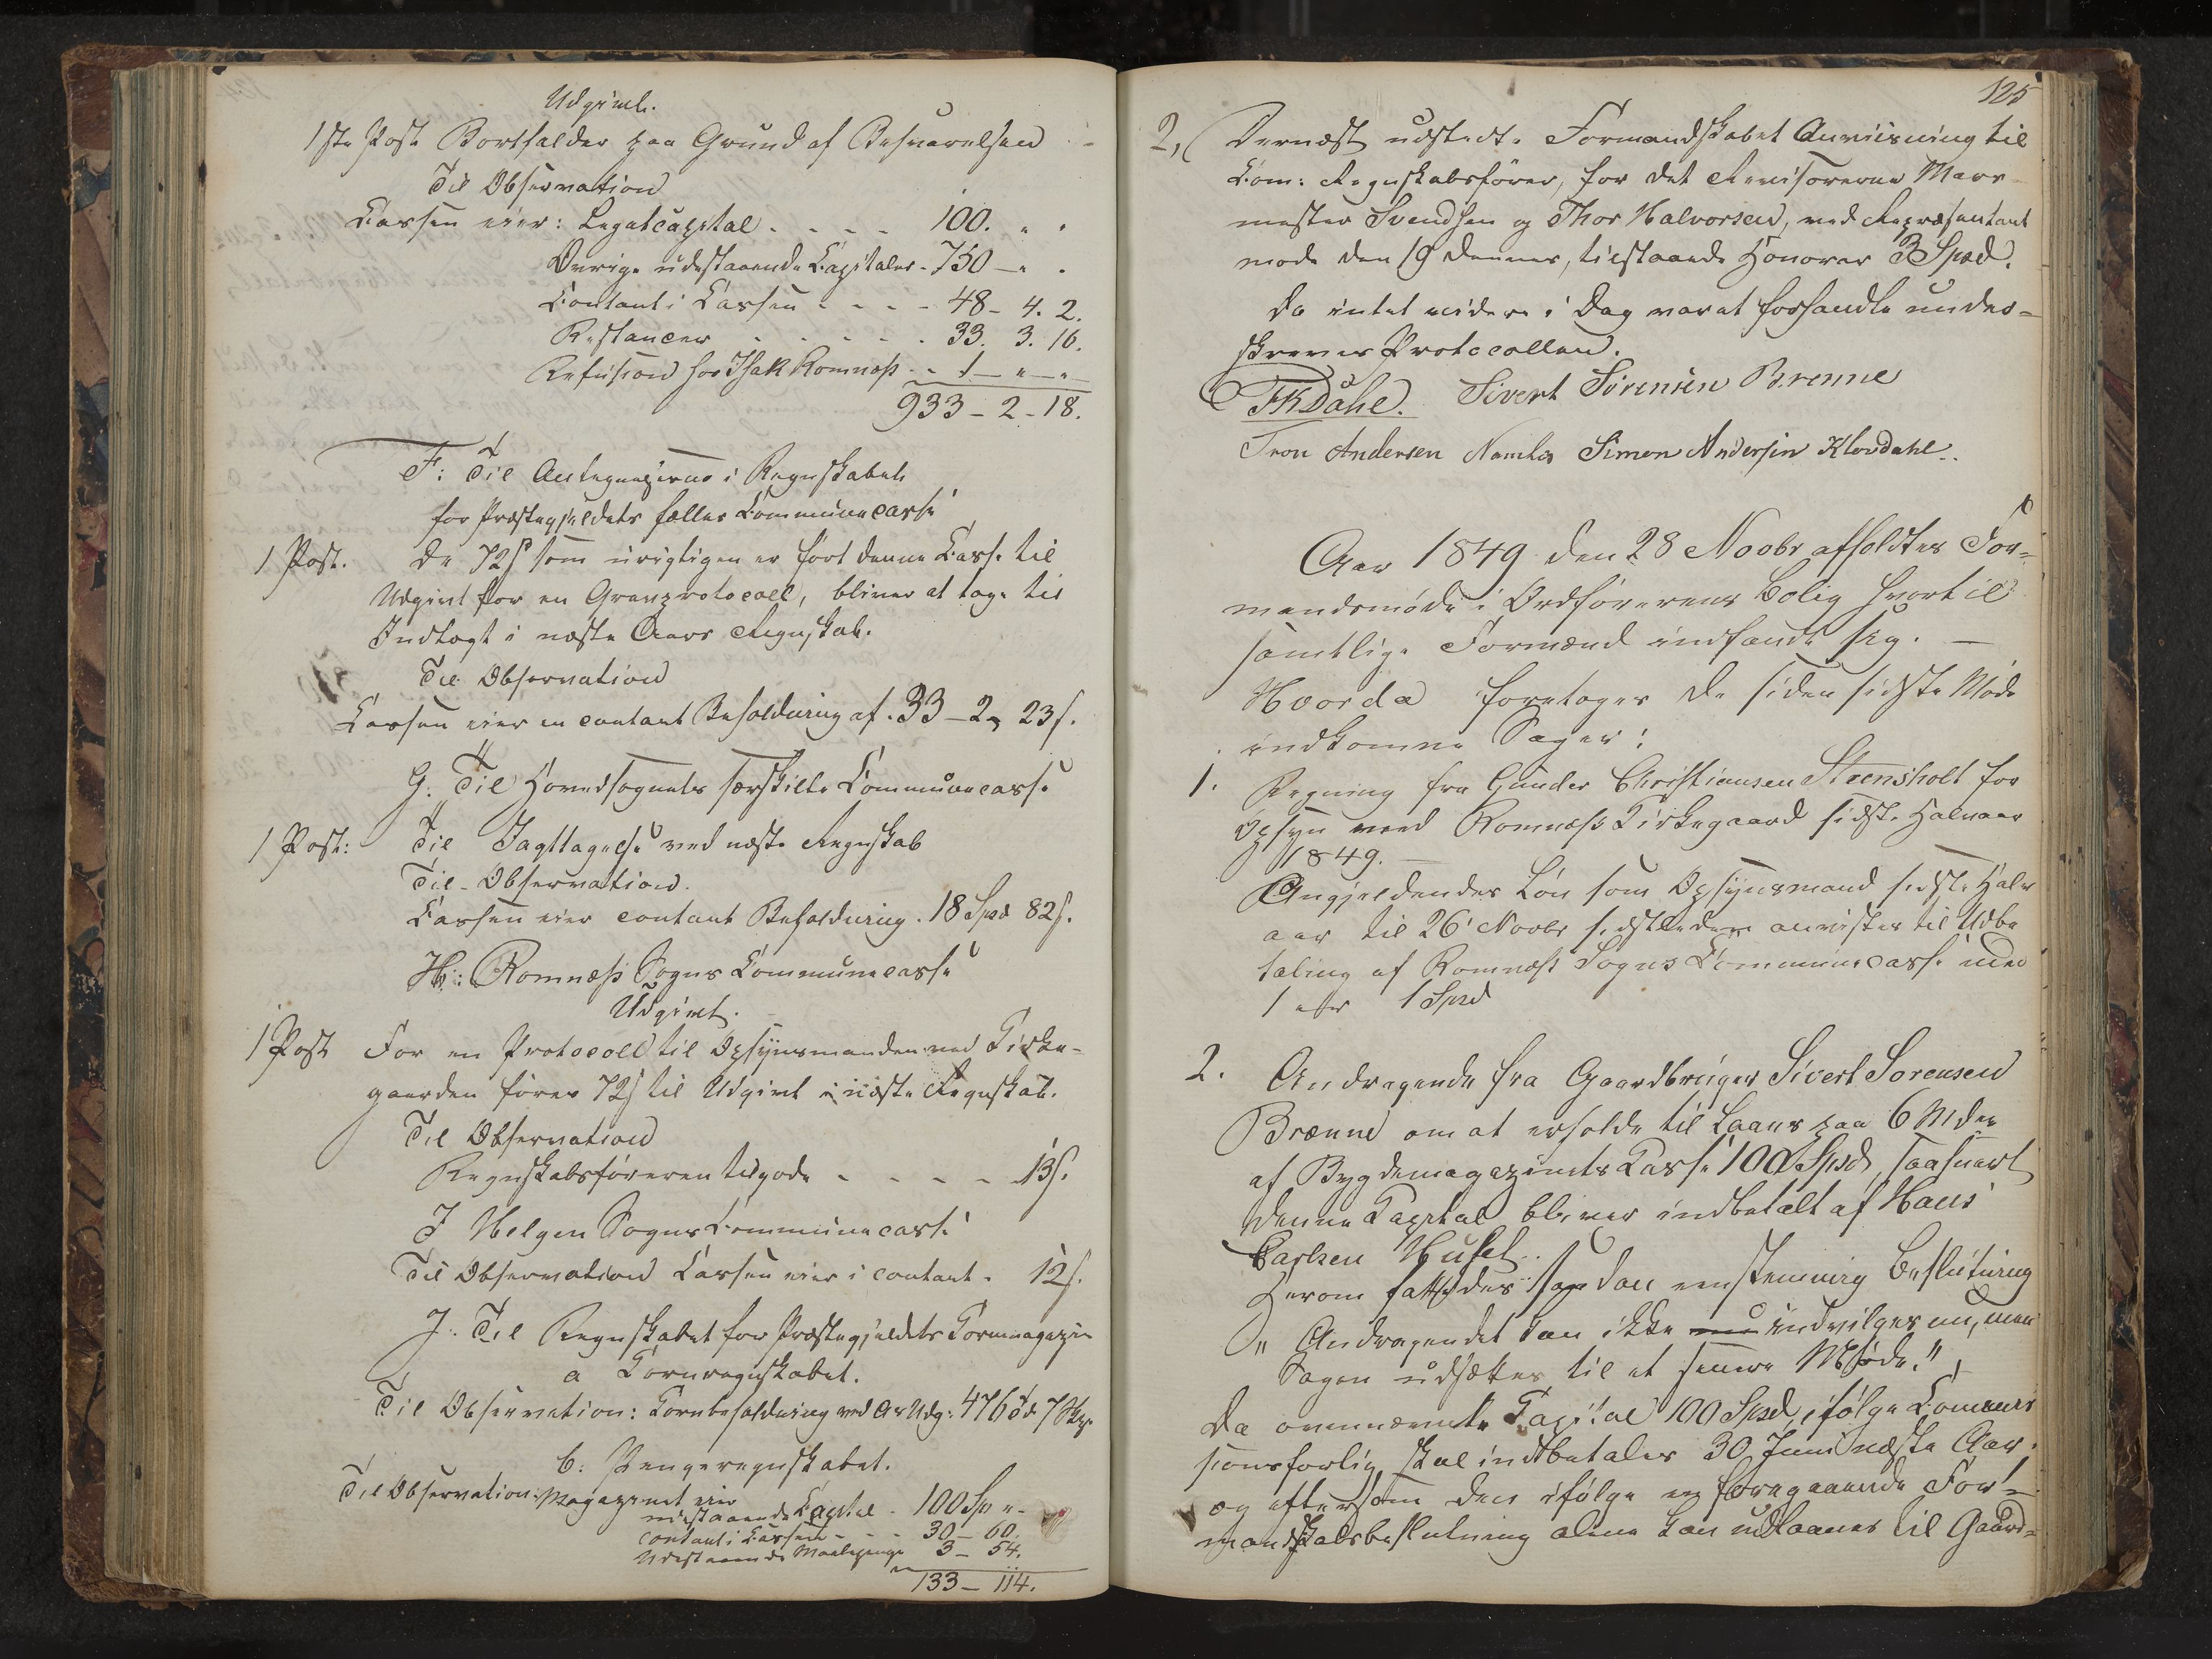 Udgivt.
1ste Post Bortfalder paa Grund af Besvarelsen
Til Observation
Cassen eier: Legatcapital . . . . 100. " "
Øvrige udestaaende Capitaler - 750 - " .
Contant i Cassen - - - - 48 - 4. 2.
Restancer . . . . . 33. 3. 16.
Refusion hos Isak Romnæs - - 1 - " - "
933 - 2 - 18.
F: Til Antegnelserne i Regnskabet
for Præstegjeldets fælles Communecasse
1 Post. De 72 s som urigtigen er ført denne Casse til
Udgivt for en Granprotocoll, bliver at tage til
Indtægt i næste Aars Regnskab.
Til Observation
Cassen eier en contant Beholdning af . 33 - 2 " 23 s.
G. Til Hovedsognets særskilte Communecasse
1 Post: Til Iagttagelse ved næste Regnskab
Til Observation.
Cassen eier contant Beholdning . 18 Spd 82 s.
H: Romnæs Sogns Communecasse
Udgivt.
1 Post For en Protocoll til Opsynsmanden ved Kirke-
gaarden føres 72 s til Udgivt i næste Regnskab.
Til Observation
Regnskabsføreren tilgode - - - - 13 s.
I Helgen Sogns Communecasse
Til Observation Cassen eier i contant . 12 s.
J. Til Regnskabet for Præstegjeldets Kornmagazin
a Kornregnskabet.
Til Observation: Kornbeholdning ved Ars Udg: 476 Td 7
b: Pengeregnskabet.
Til Observation: Magazinet eier
udestaaende Capital - 100 Sp " -
contant i Cassen - - - 30 - 60.
Udestaaende 3 - 54.
133 - 114.
125
2, Dernæst udstedte Formandskabet Anviisning til
Com: Regnskabsfører, for det Revisorerne Mar-
mester Svendsen og Thor Halvorsen, ved Repræsentant
møde den 19 dennes, tilstaaede Honorar 3 Spd.
Da intet videre i Dag var at forhandle under-
skreves Protocollen.
FKDahl. Sivert Sörensen Brenne
Tron Andersen Namløs Simon Andersen Klovdahl.
Aar 1849 den 28 Novbr afholdtes For-
mandsmøde i Ordførerens Bolig hvortil
samtlige Formænd indfandt sig. -
Hvorda foretoges de siden sidste Møde
indkomne Sager:
1. Regning fra Gunder Christiansen Steensholt for
Opsyn ved Romnæs Kirkegaard sidste Halvaar
1849. -
Angjeldendes Løn som Opsynsmand sidste Halv
aar til 26 Novbr sidstleden anvistes til Udbe
taling af Romnæs Sogns Communecasse med
1 1 Spd
2. Andragende fra Gaardbruger Sivert Sorensen
Brænne om at erholde til Laans paa 6 Mdr
af Bygdemagazinets Casse 100 Spd, saasnart
denne Capital bliver indbetalt af Hans
Carlsen Huset.
Herom fattedes saadan eenstemmig Beslutning
" Andragendet kan ikke nu indvilges nu, men
Sagen udsættes til et senere Møde."
Da ovennævnte Capital 100 Spd, ifølge Commis
sionsforlig skal indbetales 30 Juni næste Aar,
og eftersom den ifølge en foregaaende For-
mandskabsbeslutning alene kan udlaanes til Gaard-